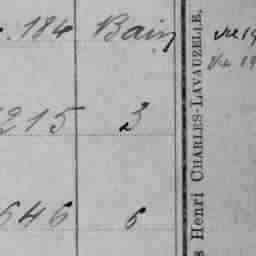 184 Bain
215 3
646 6
s Henri CHARLES-LAVAUZELLE.